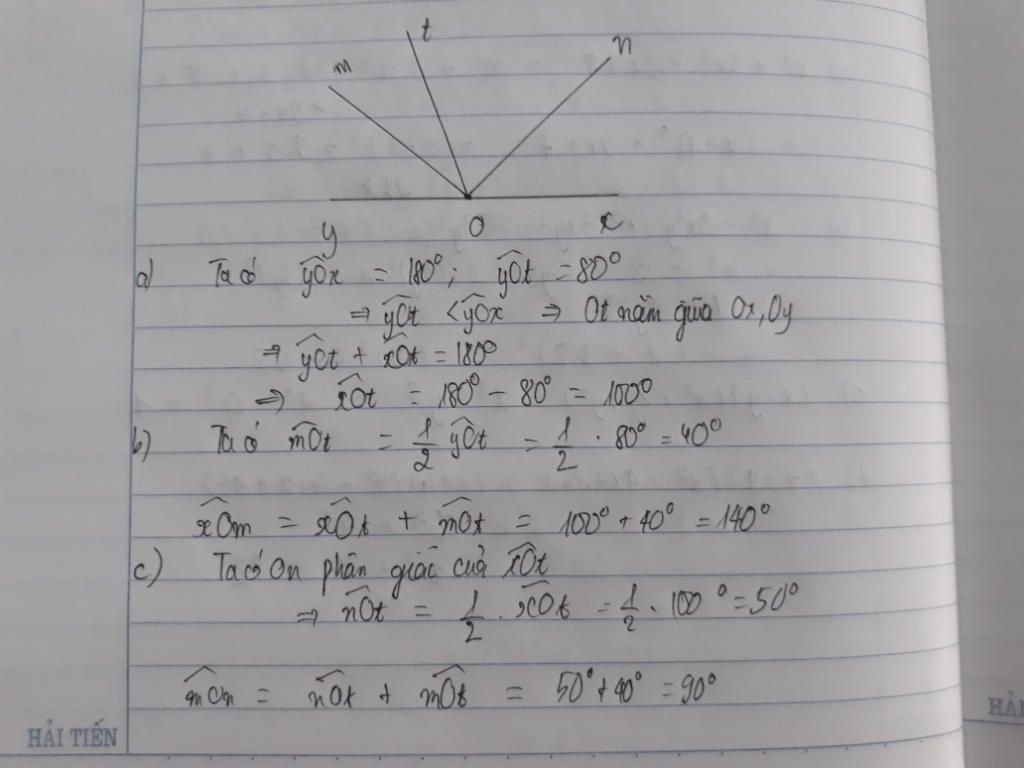 t
m
n
y O x
a) Ta có yÔx = 180°; yÔt = 80°
⇒ yÔt < yÔx ⇒ Ot nằm giữa Ox, Oy
⇒ yÔt + xÔt = 180°
⇒ xÔt = 180° - 80° = 100°
b) Ta có mÔt = 1/2 yÔt = 1/2 . 80° = 40°
xÔm = xÔt + mÔt = 100° + 40° = 140°
c) Ta có On phân giác của xÔt
⇒ nÔt = 1/2 . xÔt = 1/2 . 100° = 50°
mÔn = nÔt + mÔt = 50° + 40° = 90°
HẢI TIẾN
HẢI